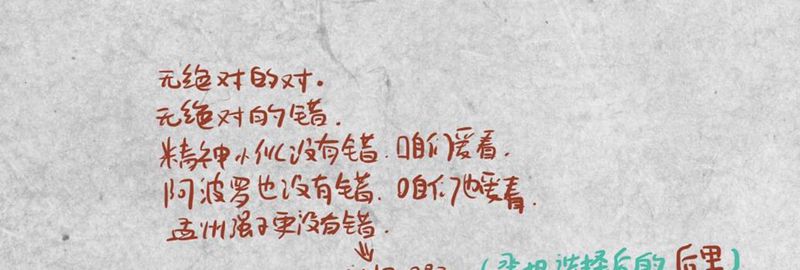 无绝对的对。
无绝对的错.
精神小伙没有错.咱们爱看.
阿波罗也没有错.咱们也爱看.
孟州强子更没有错.
选择后的后果)